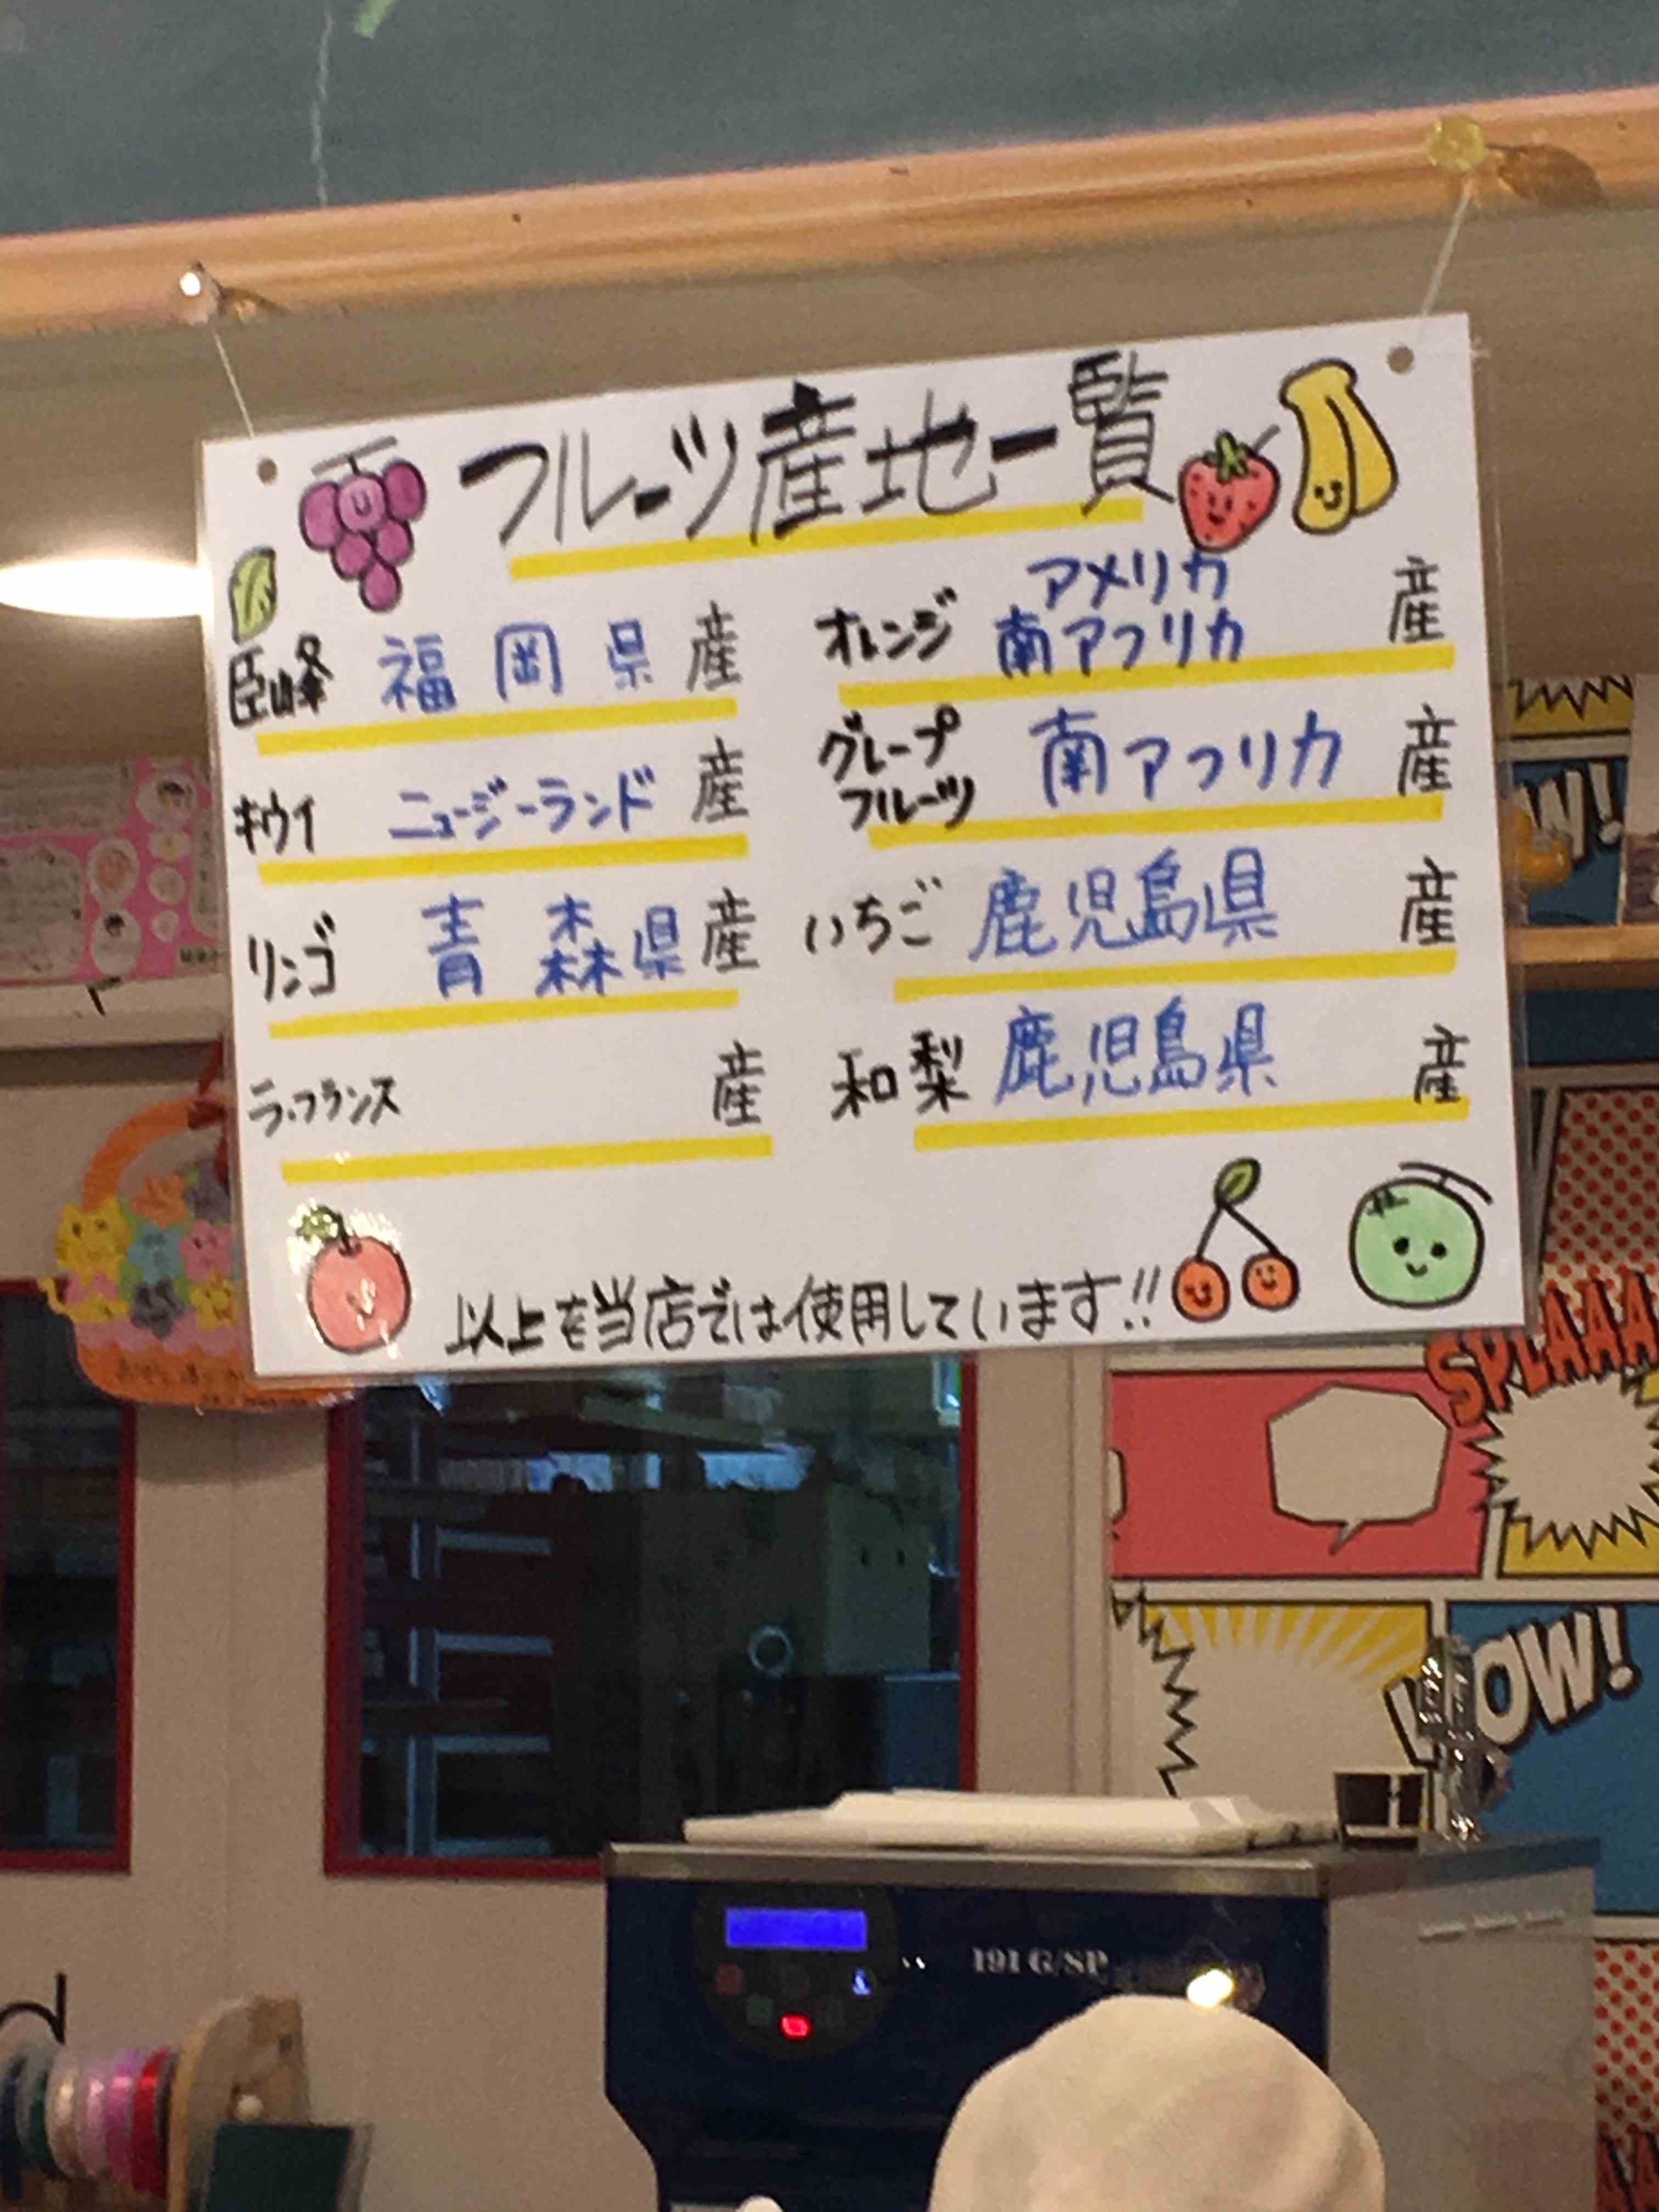 フルーツ産地一覧
臣峰 福岡県産
キウイ ニュージーランド 産
リンゴ 青森県産
ラ・フランス 産
オレンジ アメリカ
南アフリカ 産
グレープ
フルーツ 南アフリカ 産
いちご 鹿児島県 産
和梨 鹿児島県 産
以上を当店では使用しています!!
W!
SPLAAA
WOW!
191 G/SP
d